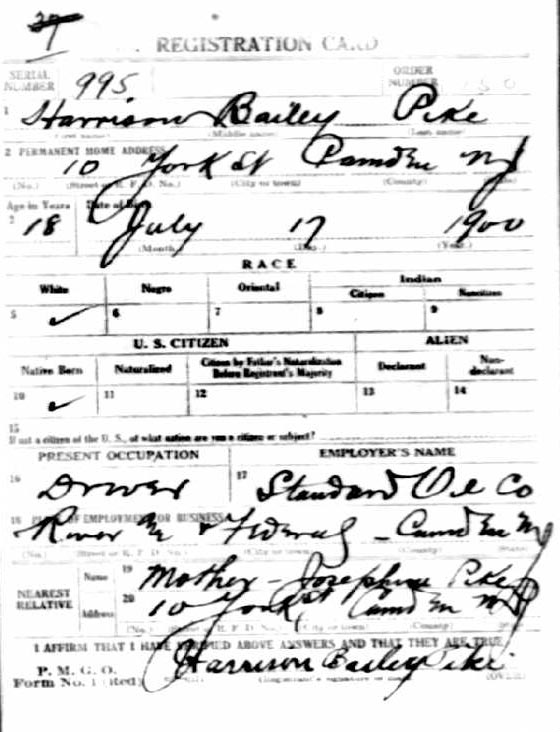 REGISTRATION CARD
SERIAL NUMBER 995 ORDER NUMBER
1 Harrison Bailey Pike
(First name) (Middle name) (Last name)
2 PERMANENT HOME ADDRESS
10 York St Camden NJ
(No.) (Street or R. F. D. No.) (City or town) (County)
Age in Years Date of Birth
3 18 July 17 1900
(Month) (Day) (Year)
RACE
White Negro Oriental Indian
Citizen Noncitizen
5 ✓ 6 7 8 9
U. S. CITIZEN ALIEN
Native Born Naturalized Citizen by Father's Naturalization Before Registrant's Majority Declarant Non-declarant
10 ✓ 11 12 13 14
15
If not a citizen of the U. S., of what nation are you a citizen or subject?
PRESENT OCCUPATION EMPLOYER'S NAME
16 Driver 17 Standard Oil Co
18 PLACE OF EMPLOYMENT OR BUSINESS
River & Federal - Camden NJ
(No.) (Street or R. F. D. No.) (City or town) (County) (State)
NEAREST RELATIVE
Name 19 Mother - Josephine Pike
Address 20 10 York St Camden NJ
(No.) (Street or R. F. D. No.) (City or town) (County) (State)
I AFFIRM THAT I HAVE VERIFIED ABOVE ANSWERS AND THAT THEY ARE TRUE
P. M. G. O.
Form No. 1 (Red) Harrison Bailey Pike
(Registrant's signature or mark) (OVER)